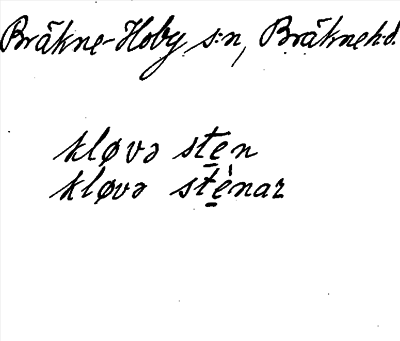 Bräkne-Hoby s:n, Bräkneh.d.
kløvə ste̲n
kløvə stè̲nar